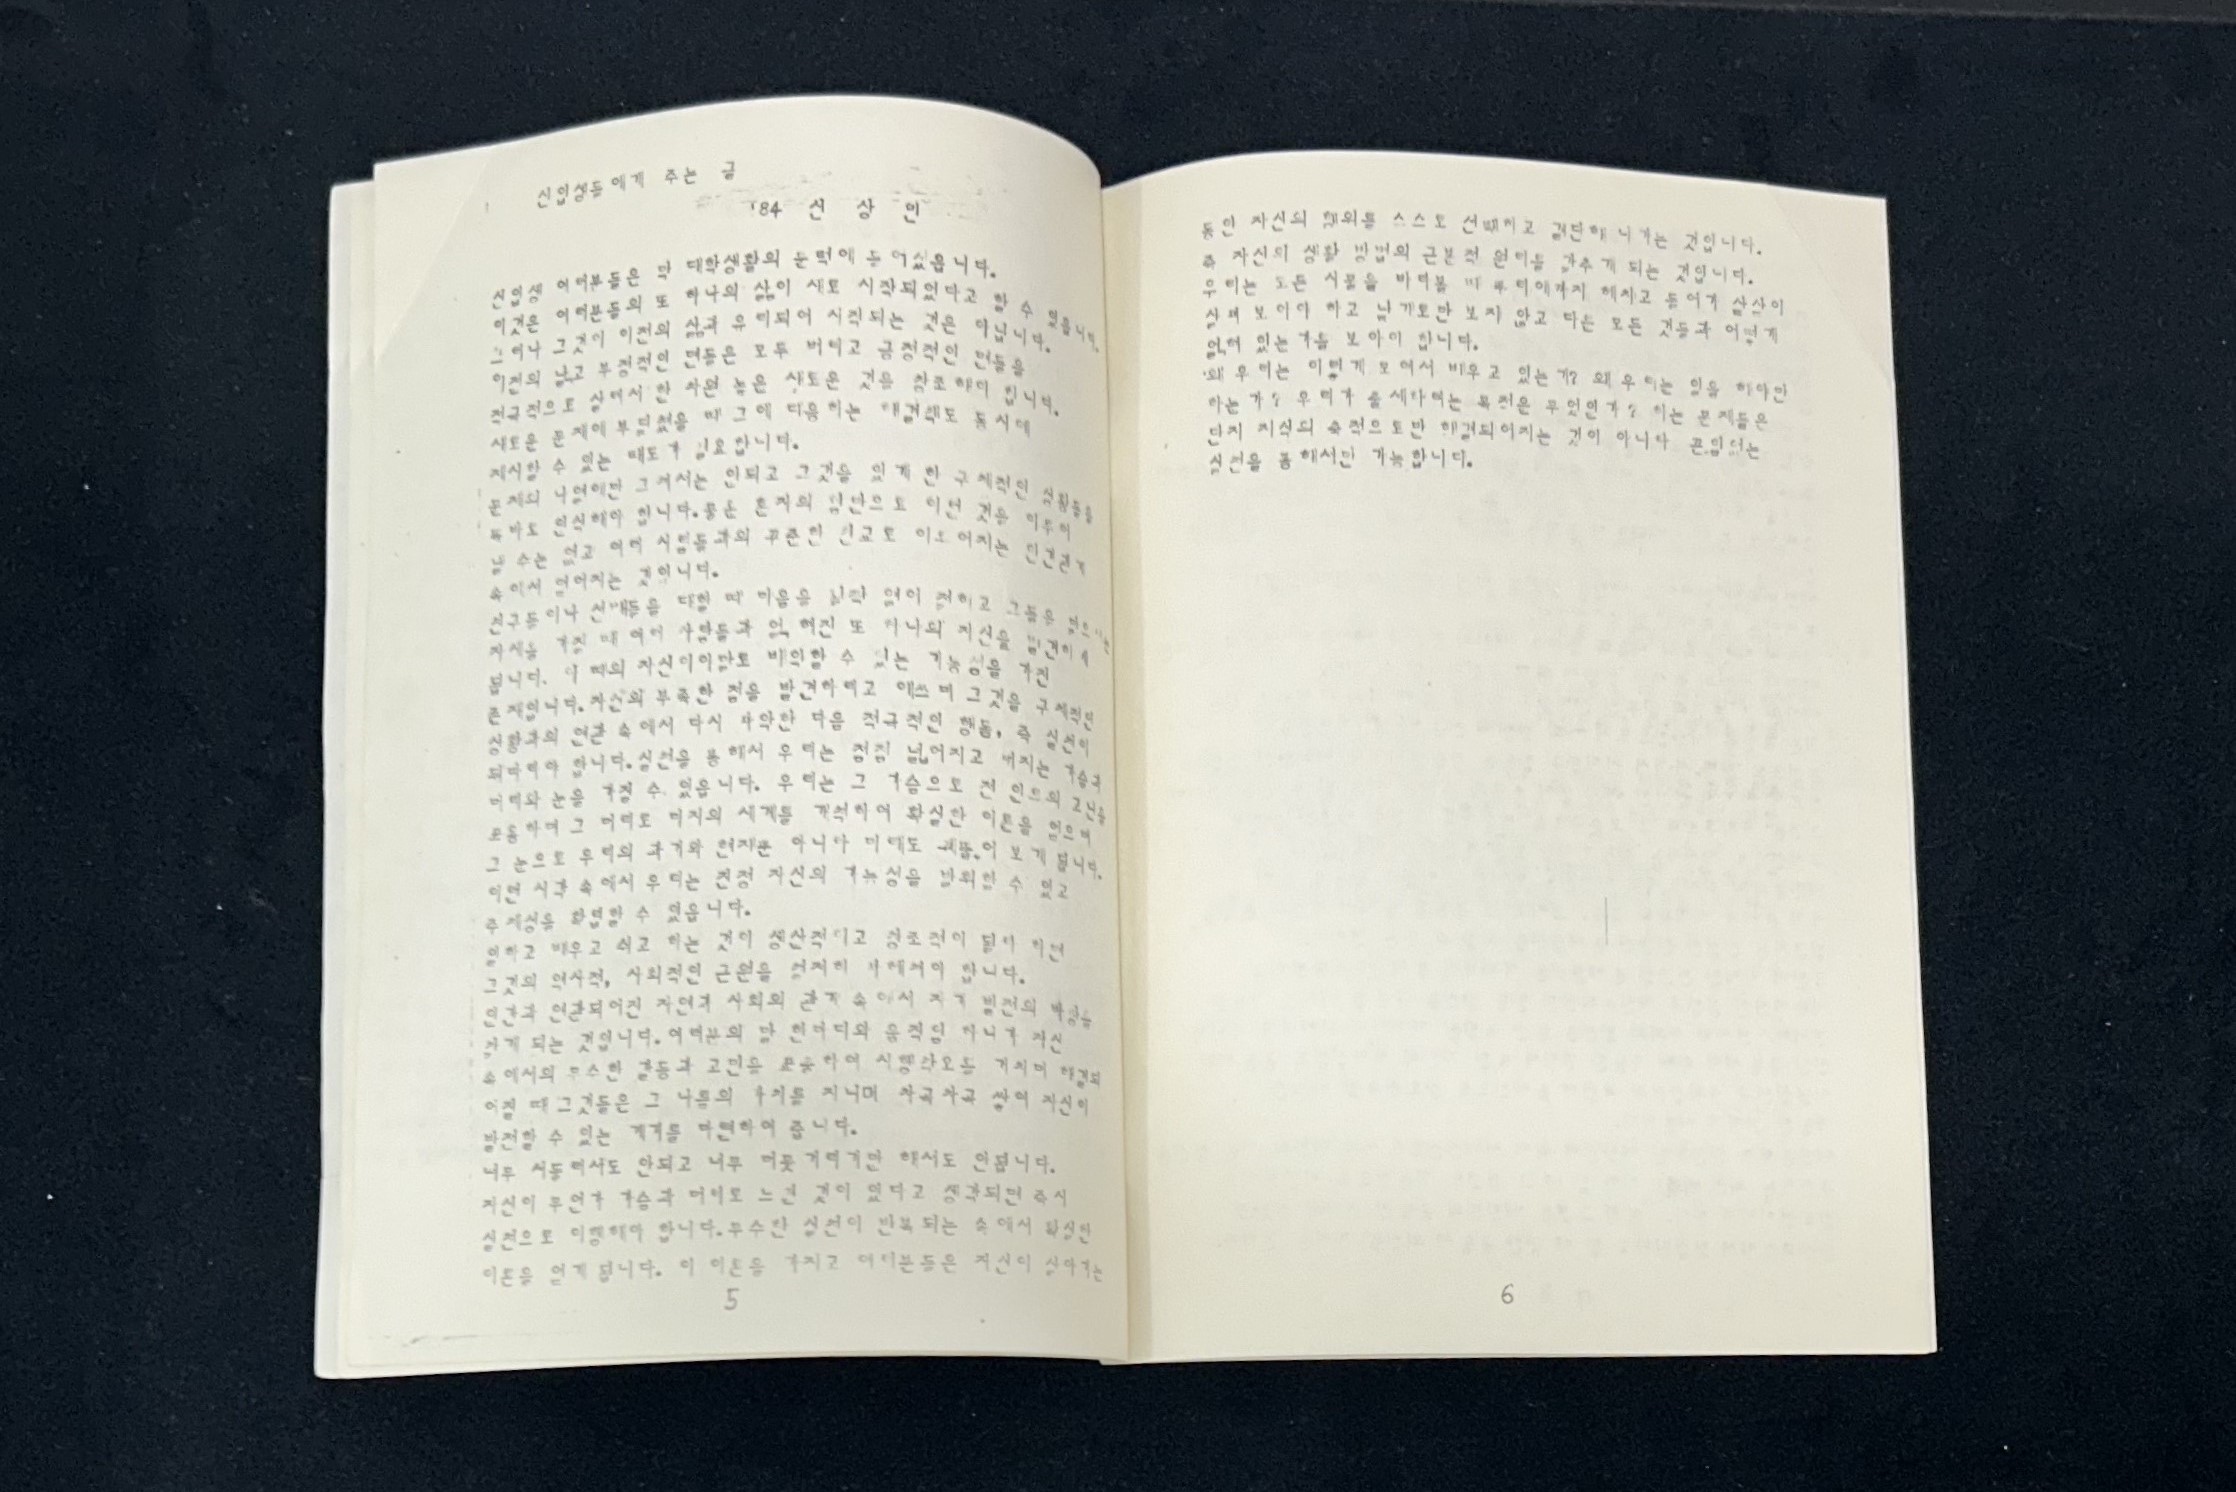 신입생들에게 주는 글
'84 신 상 인
신입생 여러분들은 막 대학생활의 문턱에 들어섰읍니다.
이것은 여러분들의 또 하나의 삶이 새로 시작되었다고 할 수 있읍니다.
그러나 그것이 이전의 삶과 유리되어 시작되는 것은 아닙니다.
이전의 낡고 부정적인 면들은 모두 버리고 긍정적인 면들을
적극적으로 살려서 한 차원 높은 새로운 것을 창조해야 합니다.
새로운 문제에 부딪쳤을 때 그에 대응하는 해결책도 동시에
제시할 수 있는 태도가 필요합니다.
문제의 나열에만 그쳐서는 안되고 그것을 있게 한 구체적인 상황들을
똑바로 인식해야 합니다. 물론 혼자의 힘만으로 이런 것을 이루어
낼 수는 없고 여러 사람들과의 꾸준한 친교로 이루어지는 인간관계
속에서 얻어지는 것입니다.
친구들이나 선배들을 대할 때 마음을 남김 없이 전하고 그들을
자세를 가질 때 여러 사람들과 얽혀진 또 하나의 자신을 발견하게
됩니다. 이 때의 자신이야말로 변화할 수 있는 가능성을 가진
존재입니다. 자신의 부족한 점을 발견하려고 애쓰며 그것을 구체적인
상황과의 연관 속에서 다시 파악한 다음 적극적인 행동, 즉 실천이
뒤따라야 합니다. 실천을 통해서 우리는 점점 넓어지고 커지는 가슴과
머리와 눈을 가질 수 있읍니다. 우리는 그 가슴으로 전 인류의 고난을
포용하며 그 머리로 미지의 세계를 개척하여 확실한 이론을 얻으며
그 눈으로 우리의 과거와 현재뿐 아니라 미래도 꿰뚫어 보게 됩니다.
이런 시각 속에서 우리는 진정 자신의 가능성을 발휘할 수 있고
주체성을 확립할 수 있읍니다.
일하고 배우고 쉬고 하는 것이 생산적이고 창조적이 될려 하면
그것의 역사적, 사회적인 근원을 철저히 파헤쳐야 합니다.
인간과 연관되어진 자연과 사회의 관계 속에서 자기 발전의 바탕을
갖게 되는 것입니다. 여러분의 말 한마디와 움직임 하나가 자신
속에서의 무수한 갈등과 고민을 포함하여 시행착오를 거치며 해결되
어질 때 그것들은 그 나름의 가치를 지니며 차곡차곡 쌓여 자신이
발전할 수 있는 계기를 마련하여 줍니다.
너무 서둘러서도 안되고 너무 머뭇거리기만 해서도 안됩니다.
자신이 무언가 가슴과 머리로 느낀 것이 있다고 생각되면 즉시
실천으로 이행해야 합니다. 무수한 실천이 반복되는 속에서 확실한
이론을 얻게 됩니다. 이 이론을 가지고 여러분들은 자신이 살아가는
5
동안 자신의 행위를 스스로 선택하고 결단해 나가는 것입니다.
즉 자신의 생활 방법의 근본적 원리를 갖추게 되는 것입니다.
우리는 모든 사물을 바라볼 때 뿌리에까지 헤치고 들어가 샅샅이
살펴 보아야 하고 낱개로만 보지 않고 다른 모든 것들과 어떻게
얽혀 있는가를 보아야 합니다.
왜 우리는 이렇게 모여서 배우고 있는가? 왜 우리는 일을 하야만
하는가? 우리가 출세하려는 목적은 무엇인가? 하는 문제들은
단지 지식의 축적으로만 해결되어지는 것이 아니라 끊임없는
실천을 통해서만 가능합니다.
6